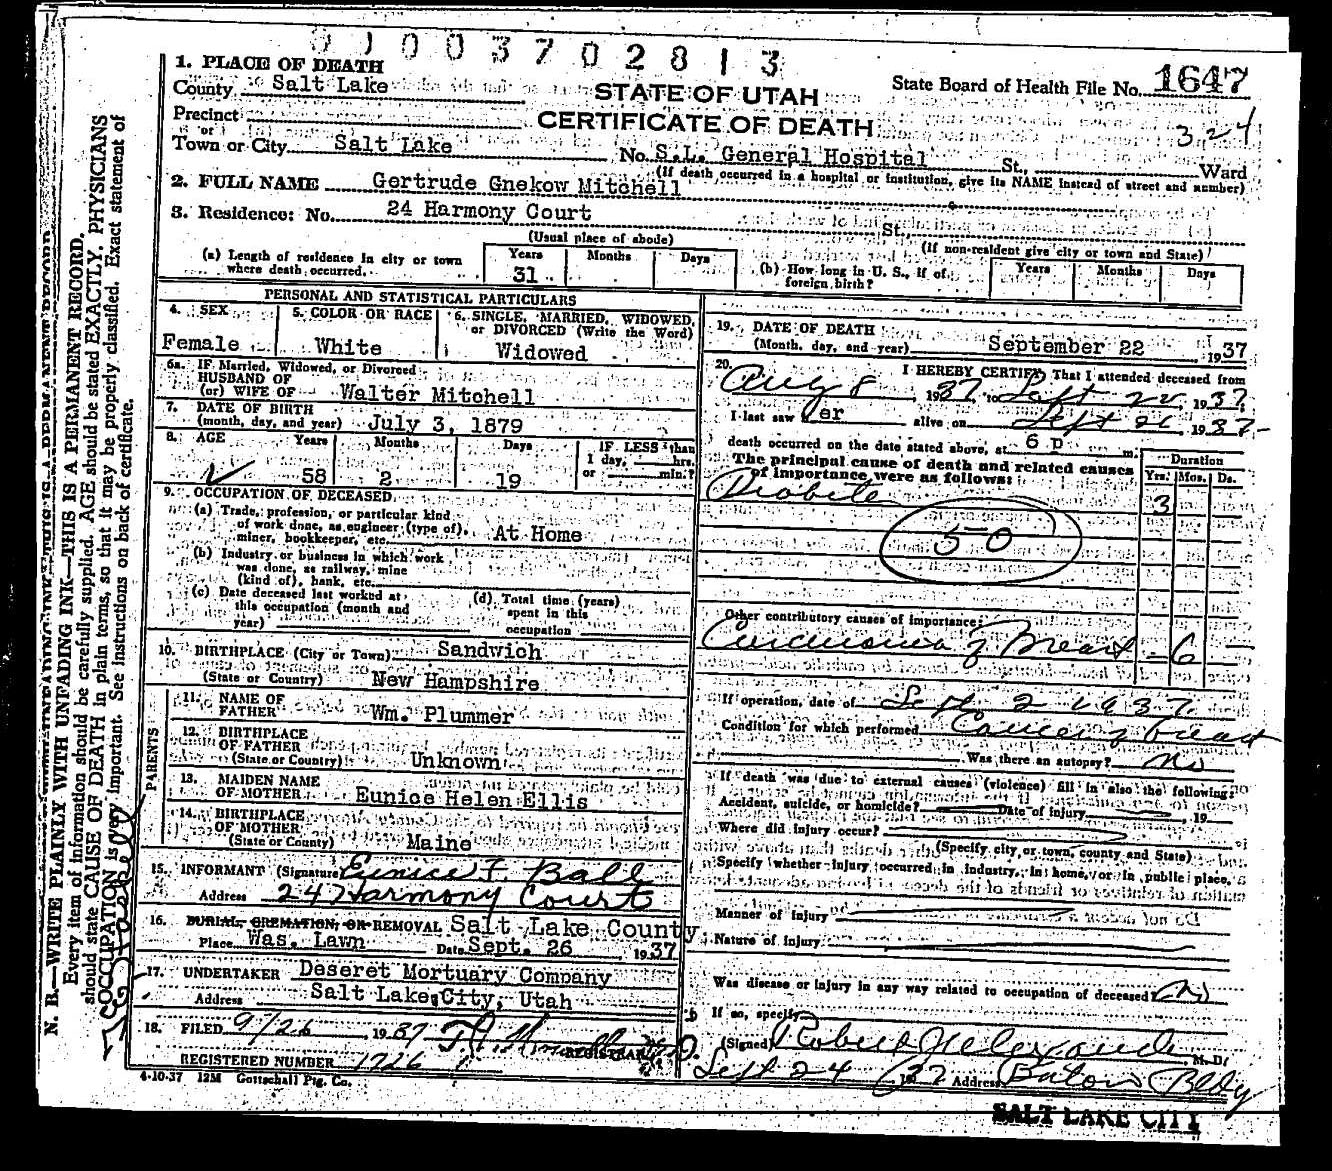 0 1 0 0 3 7 0 2 8 1 3
1. PLACE OF DEATH
County Salt Lake
STATE OF UTAH
CERTIFICATE OF DEATH
State Board of Health File No. 1647
324
Precinct
or
Town or City Salt Lake No. S.L. General Hospital St., Ward
(If death occurred in a hospital or institution, give its NAME instead of street and number)
2. FULL NAME Gertrude Gnekow Mitchell
3. Residence: No. 24 Harmony Court St.
(Usual place of abode) (If non-resident give city or town and State)
(a) Length of residence in city or town where death occurred. Years 31 Months Days
(b) How long in U. S., if of foreign birth? Years Months Days
PERSONAL AND STATISTICAL PARTICULARS
4. SEX 5. COLOR OR RACE 6. SINGLE, MARRIED, WIDOWED, or DIVORCED (Write the Word)
Female White Widowed
6a. IF Married, Widowed, or Divorced
HUSBAND OF
(or) WIFE OF Walter Mitchell
7. DATE OF BIRTH
(month, day, and year) July 3, 1879
8. AGE Years Months Days IF LESS than
1 day, hrs.
or min.?
58 2 19
9. OCCUPATION OF DECEASED
(a) Trade, profession, or particular kind
of work done, as engineer (type of),
miner, bookkeeper, etc. At Home
(b) Industry or business in which work
was done, as railway, mine
(kind of), bank, etc.
(c) Date deceased last worked at
this occupation (month and
year)
(d) Total time (years)
spent in this
occupation
10. BIRTHPLACE (City or Town) Sandwich
(State or Country) New Hampshire
PARENTS
11. NAME OF
FATHER Wm. Plummer
12. BIRTHPLACE
OF FATHER
(State or Country) Unknown
13. MAIDEN NAME
OF MOTHER Eunice Helen Ellis
14. BIRTHPLACE
OF MOTHER
(State or County) Maine
15. INFORMANT (Signature) Eunice F. Ball
Address 247 Harmony Court
16. BURIAL, CREMATION, OR REMOVAL Salt Lake County
Place Was. Lawn Date Sept. 26, 1937
17. UNDERTAKER Deseret Mortuary Company
Address Salt Lake City, Utah
18. FILED 9/26 1937
REGISTRAR
REGISTERED NUMBER 1726
4-10-37 12M Gottschall Ptg. Co.
19. DATE OF DEATH
(Month, day, and year) September 22, 1937
20. I HEREBY CERTIFY That I attended deceased from
Aug 8, 1937 to Sept 22, 1937
I last saw her alive on Sept 22 1937
death occurred on the date stated above, at 6 p m.
The principal cause of death and related causes
of importance were as follows:
Duration
Yrs. Mos. Ds.
Diabetes 3
50
Other contributory causes of importance:
Carcinoma of Breast - 6
If operation, date of Sept 2 1937
Condition for which performed Cancer of breast
Was there an autopsy? No
If death was due to external causes (violence) fill in also the following:
Accident, suicide, or homicide? Date of injury, 19
Where did injury occur?
(Specify city or town, county and State)
Specify whether injury occurred in industry, in home, or in public place.
Manner of injury
Nature of injury
Was disease or injury in any way related to occupation of deceased? No
If so, specify
(Signed) Robert Alexander M. D.
Sept 24 1937 Address Boston Bldg
SALT LAKE CITY
N. B.—WRITE PLAINLY WITH UNFADING INK—THIS IS A PERMANENT RECORD.
Every item of information should be carefully supplied. AGE should be stated EXACTLY. PHYSICIANS
should state CAUSE OF DEATH in plain terms, so that it may be properly classified. Exact statement of
OCCUPATION is very important. See instructions on back of certificate.